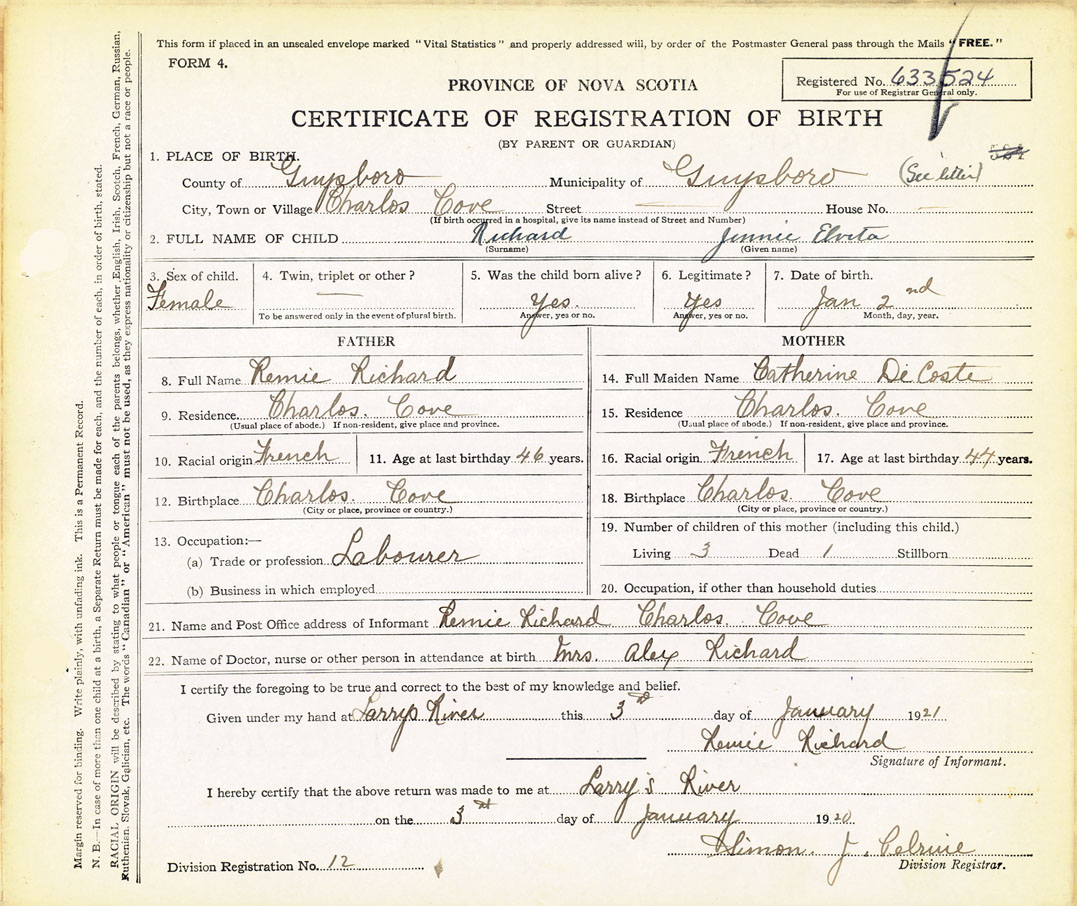 This form if placed in an unsealed envelope marked "Vital Statistics" and properly addressed will, by order of the Postmaster General pass through the Mails "FREE."
FORM 4.
Registered No. 633524
For use of Registrar General only.
PROVINCE OF NOVA SCOTIA
CERTIFICATE OF REGISTRATION OF BIRTH
(BY PARENT OR GUARDIAN)
1. PLACE OF BIRTH.
County of Guysboro Municipality of Guysboro (See letter)
City, Town or Village Charlos Cove Street House No.
(If birth occurred in a hospital, give its name instead of Street and Number)
2. FULL NAME OF CHILD Richard Jennie Elveta
(Surname) (Given name)
3. Sex of child. 4. Twin, triplet or other? 5. Was the child born alive? 6. Legitimate? 7. Date of birth.
Female Yes. Yes Jan 2nd
To be answered only in the event of plural birth. Answer, yes or no. Answer, yes or no. Month, day, year.
FATHER
8. Full Name Remie Richard
9. Residence. Charlos. Cove
(Usual place of abode.) If non-resident, give place and province.
10. Racial origin French 11. Age at last birthday 46 years.
12. Birthplace Charlos. Cove
(City or place, province or country.)
13. Occupation:—
(a) Trade or profession Labourer
(b) Business in which employed
MOTHER
14. Full Maiden Name Catherine De Coste
15. Residence Charlos. Cove
(Usual place of abode.) If non-resident, give place and province.
16. Racial origin French 17. Age at last birthday 44 years.
18. Birthplace Charlos. Cove
(City or place, province or country.)
19. Number of children of this mother (including this child.)
Living 3 Dead 1 Stillborn
20. Occupation, if other than household duties
21. Name and Post Office address of Informant Remie Richard Charlos. Cove
22. Name of Doctor, nurse or other person in attendance at birth Mrs. Alex Richard
I certify the foregoing to be true and correct to the best of my knowledge and belief.
Given under my hand at Larrys River this 3rd day of January 1921
Remie Richard
Signature of Informant.
I hereby certify that the above return was made to me at Larry's River
on the 3rd day of January 1920
Simon. J.
Division Registration No. 12 Division Registrar.
Margin reserved for binding. Write plainly, with unfading ink. This is a Permanent Record.
N. B.—In case of more than one child at a birth, a Separate Return must be made for each, and the number of each, in order of birth, stated.
RACIAL ORIGIN will be described by stating to what people or tongue each of the parents belongs, whether English, Irish, Scotch, French, German, Russian,
Ruthenian, Slovak, Galician, etc. The words "Canadian" or "American" must not be used, as they express nationality or citizenship but not a race or people.